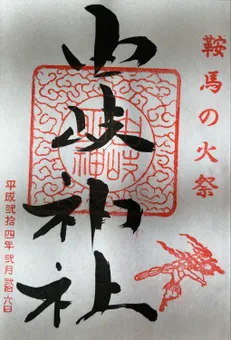 鞍馬の火祭
由岐神社
平成弐拾四年 弐月 拾六日